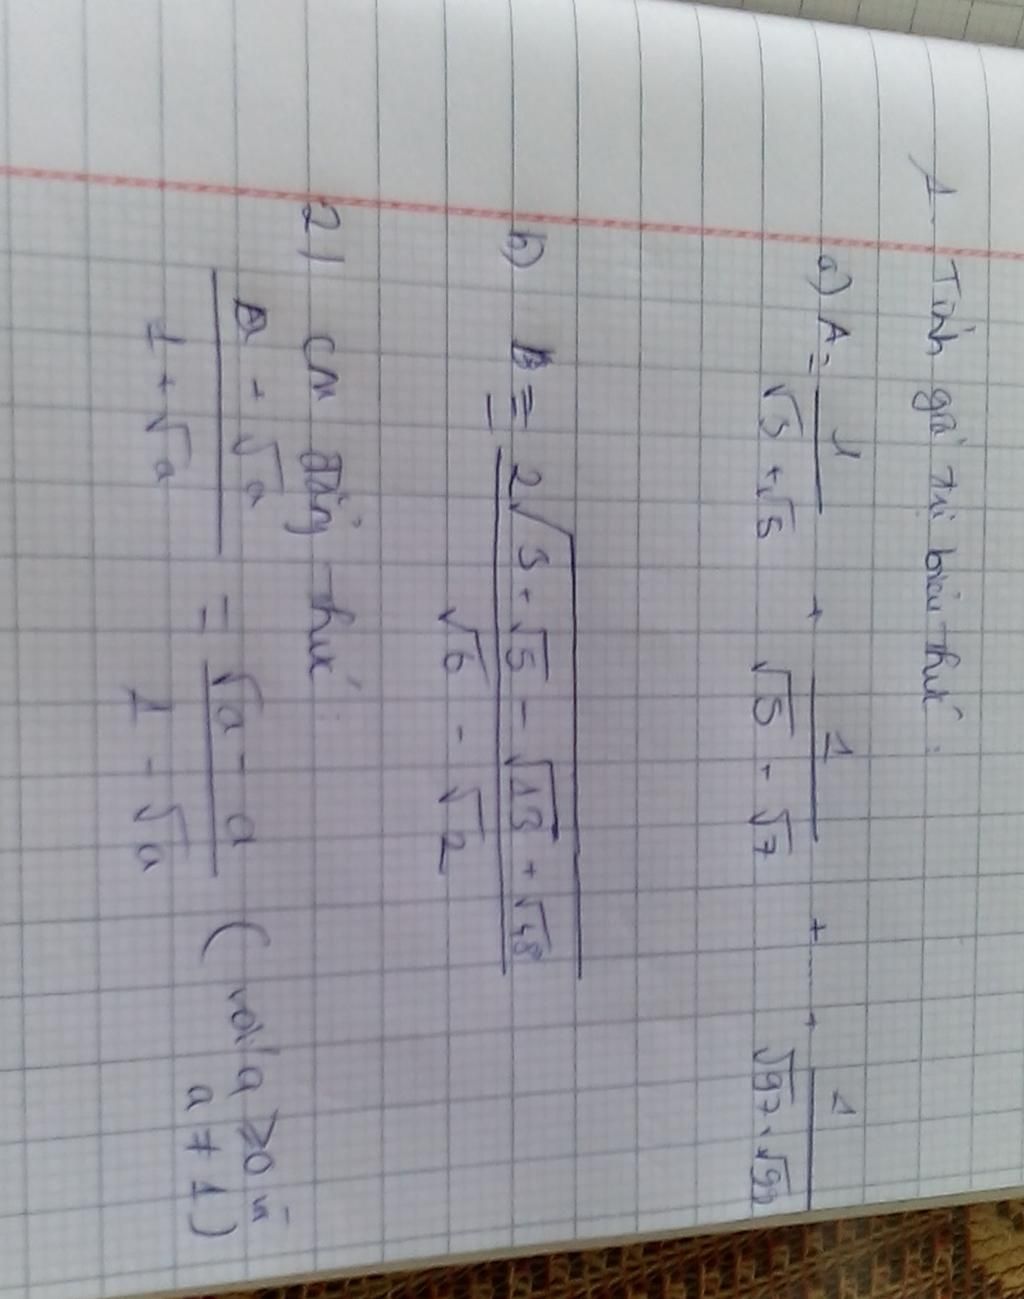 1. Tính giá trị biểu thức:
a) A = 1/(√3 + √5) + 1/(√5 + √7) + ..... + 1/(√97 + √99)
b) B = (2√(3 + √5 - √(13 + √48)))/(√6 - √2)
2) CM đẳng thức:
(a + √a)/(1 + √a) = (√a - a)/(1 - √a) (với a ≥ 0 và
a ≠ 1)